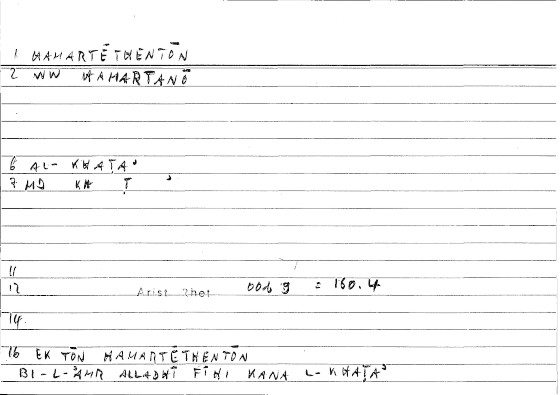 1 HAMARTĒTHENTŌN
2 WW HAMARTANŌ
6 AL- KHAṬAʾ
7 MD KH Ṭ ʾ
11
12 Arist Rhet 0069 = 160.4
14.
16 EK TŌN HAMARTĒTHENTŌN
BI-L-ʾAMR ALLADHĪ FĪHI KANA L-KHAṬAʾ